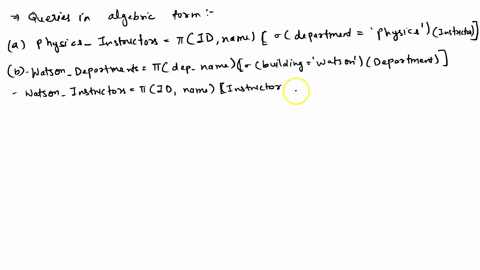 ⇒ Queries in algebric form :-
(a) Physics_Instructors = π(ID, name) [ σ( department = 'physics') (Instructor)]
(b). Watson_Departments = π( dep_name) [σ (building = 'watson') (Department)]
- Watson_Instructors = π (ID, name) [Instructor